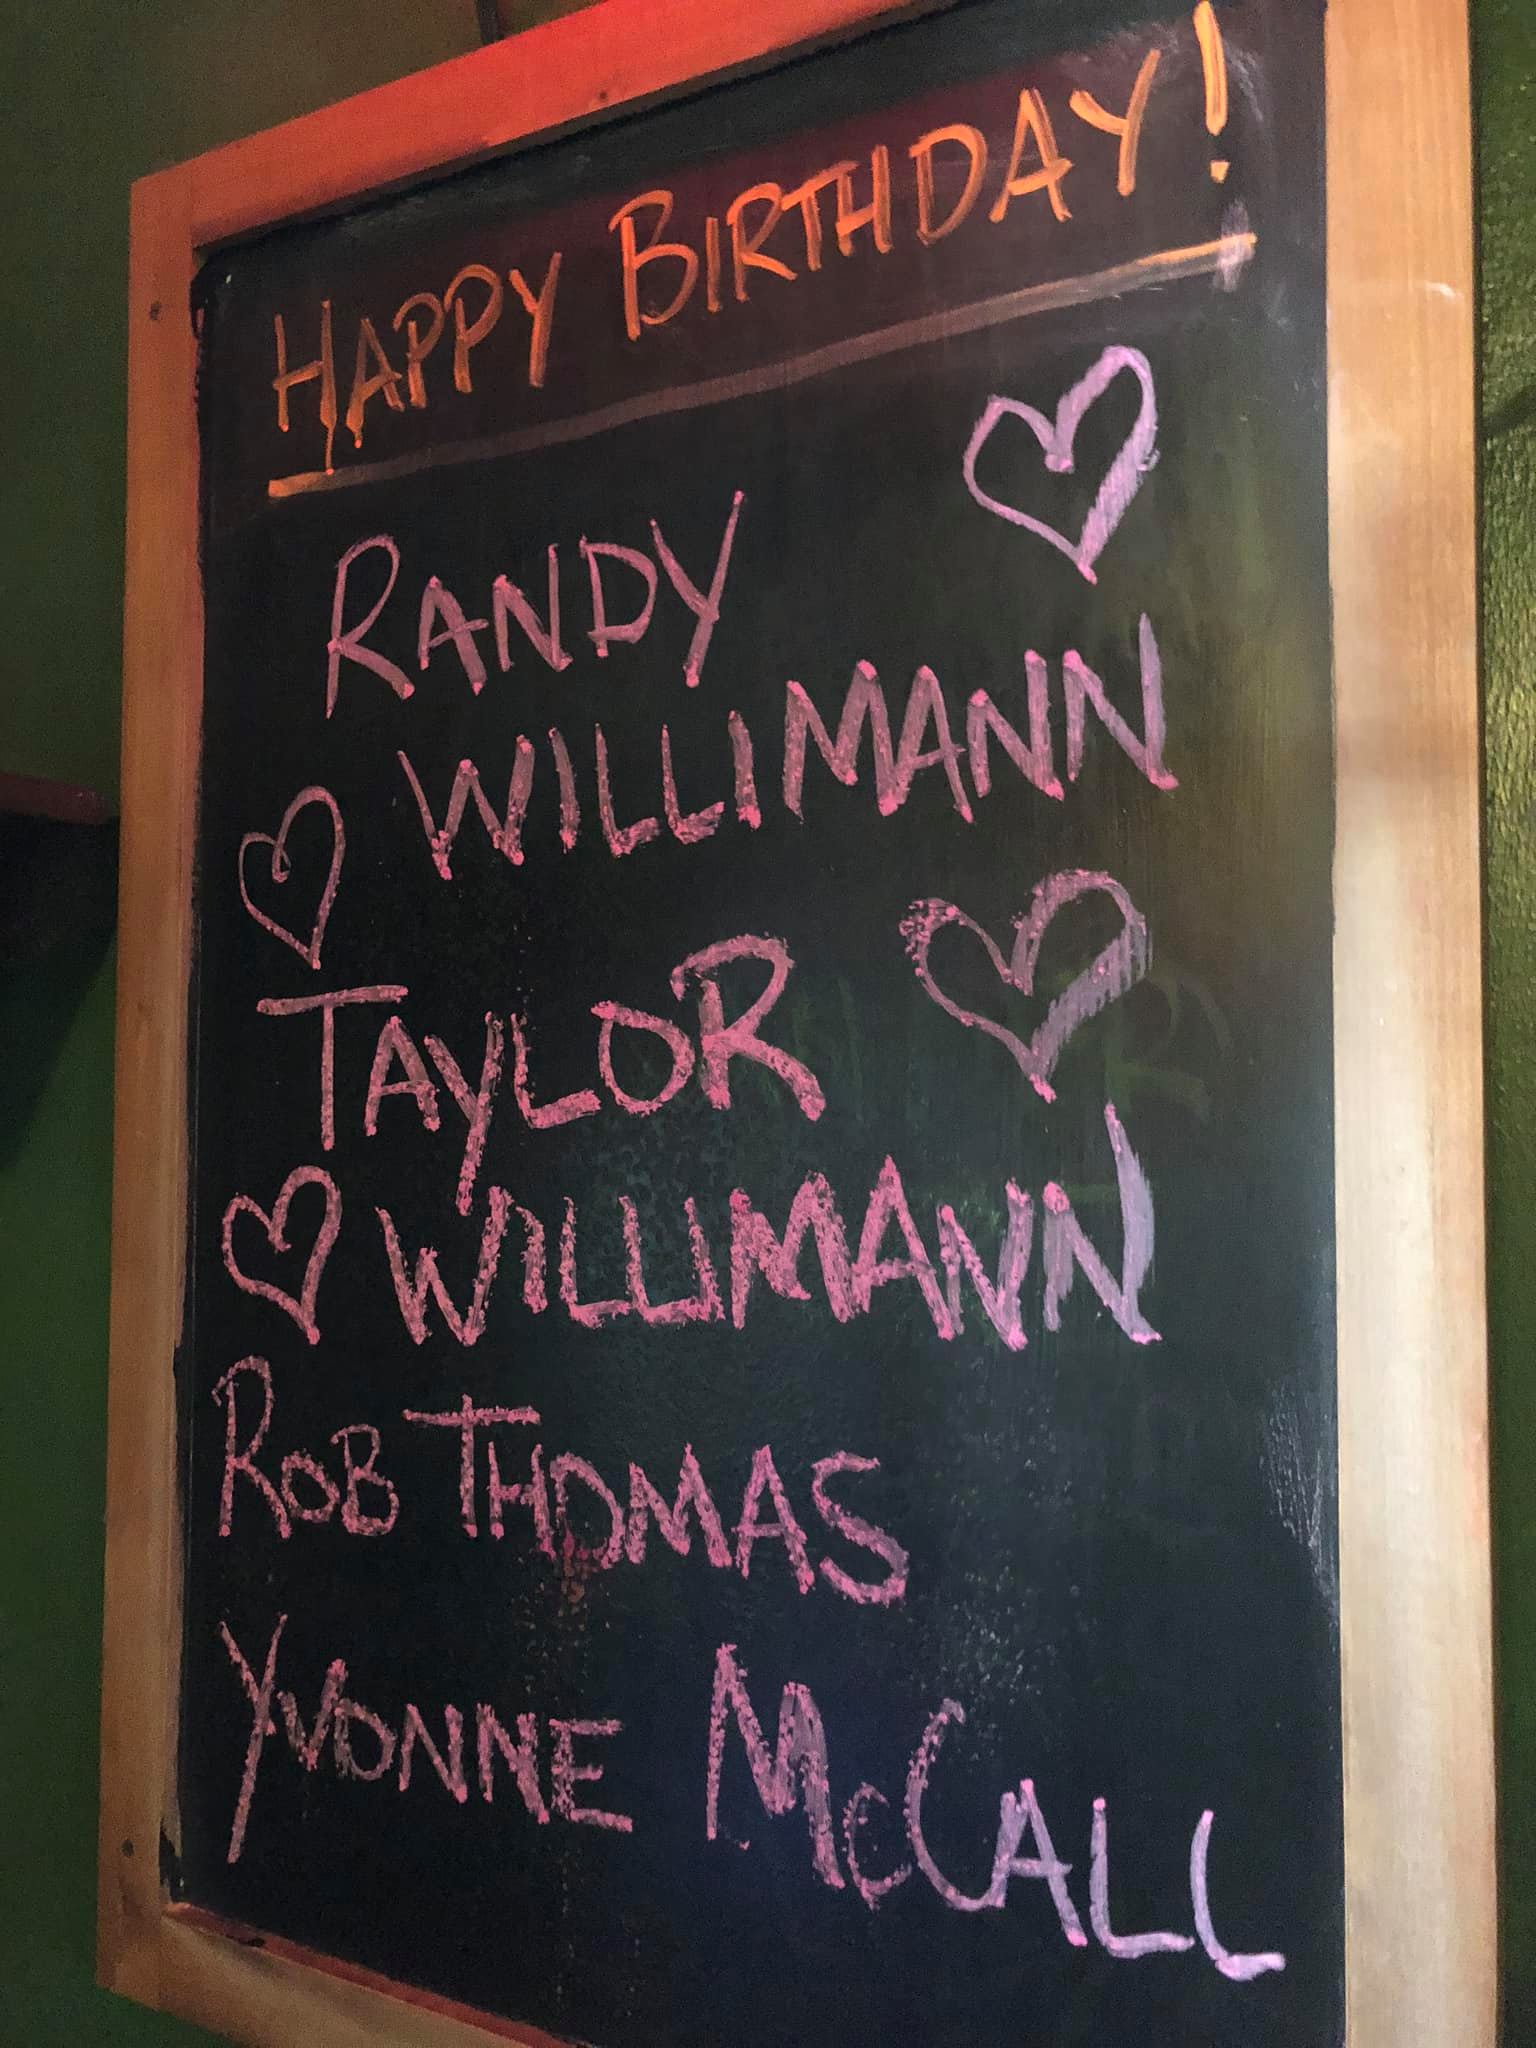 HAPPY BIRTHDAY!
RANDY
WILLIMANN
TAYLOR
WILLIMANN
ROB THOMAS
YVONNE McCALL